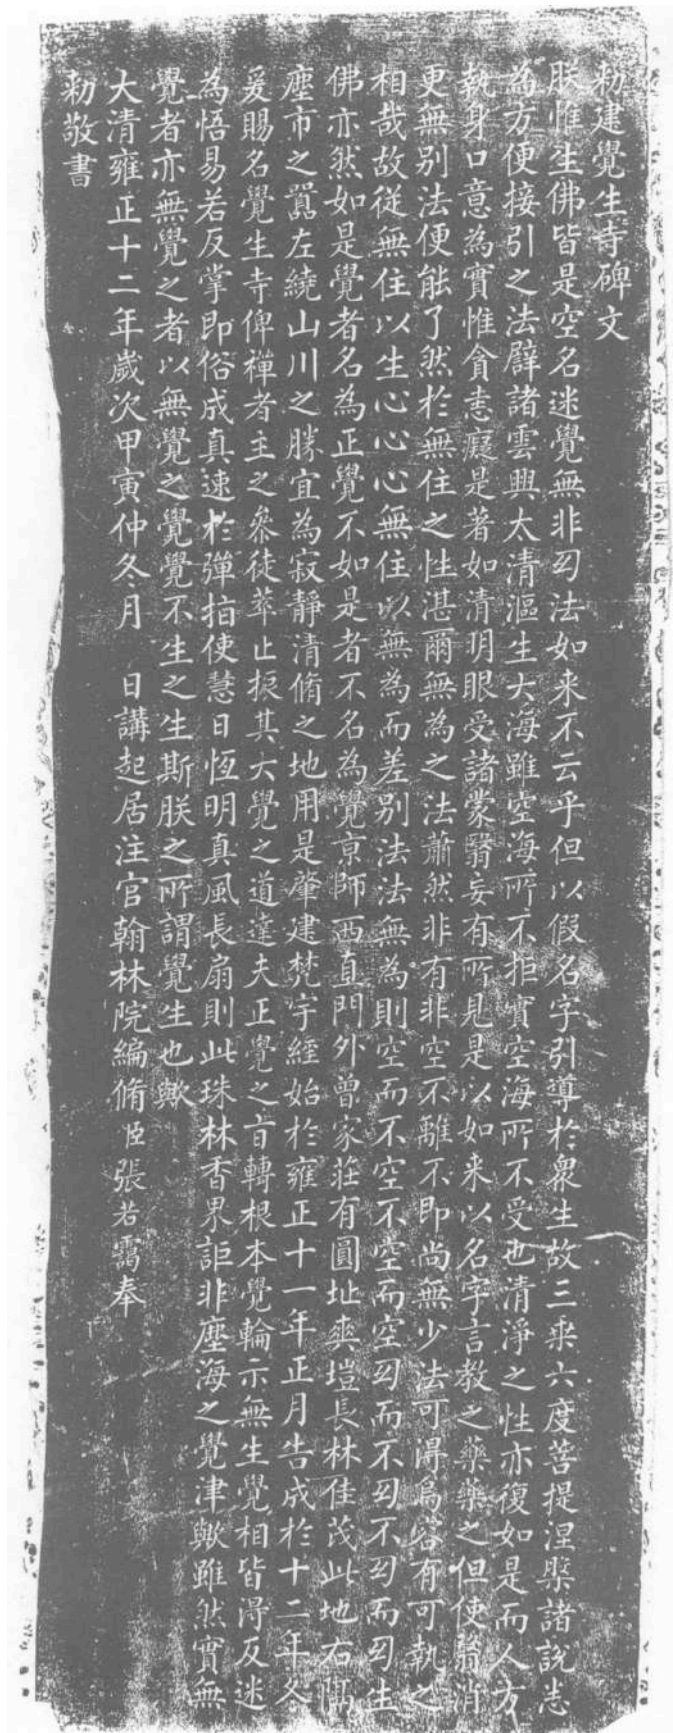 勅建覺生寺碑文
朕惟生佛皆是空名迷覺無非幻法如来不云乎但以假名字引導於衆生故三乘六度菩提涅槃諸説悉
為方便接引之法辟諸雲興太清漚生大海雖空海所不拒實空海所不受也清淨之性亦復如是而人方
執身口意為實惟貪恚癡是著如清明眼受諸蒙翳妄有所見是以如来以名字言教之藥藥之但使翳消
更無别法便能了然於無住之性湛爾無為之法蕭然非有非空不離不即尚無少法可得烏容有可執之
相哉故從無住以生心心心無住以無為而差别法法無為則空而不空不空而空幻而不幻不幻而幻生
佛亦然如是覺者名為正覺不如是者不名為覺京師西直門外曾家莊有圓址爽塏長林佳茂此地右隔
塵市之囂左繞山川之勝宜為寂靜清脩之地用是肇建梵宇經始於雍正十一年正月告成於十二年冬
爰賜名覺生寺俾禪者主之叅徒萃止振其大覺之道達夫正覺之旨轉根本覺輪示無生覺相皆得反迷
為悟易若反掌即俗成真速於彈指使慧日恆明真風長扇則此珠林香界詎非塵海之覺津歟雖然實無
覺者亦無覺之者以無覺之覺覺不生之生斯朕之所謂覺生也歟
大清雍正十二年歲次甲寅仲冬月　日講起居注官翰林院編脩臣張若靄奉
勅敬書